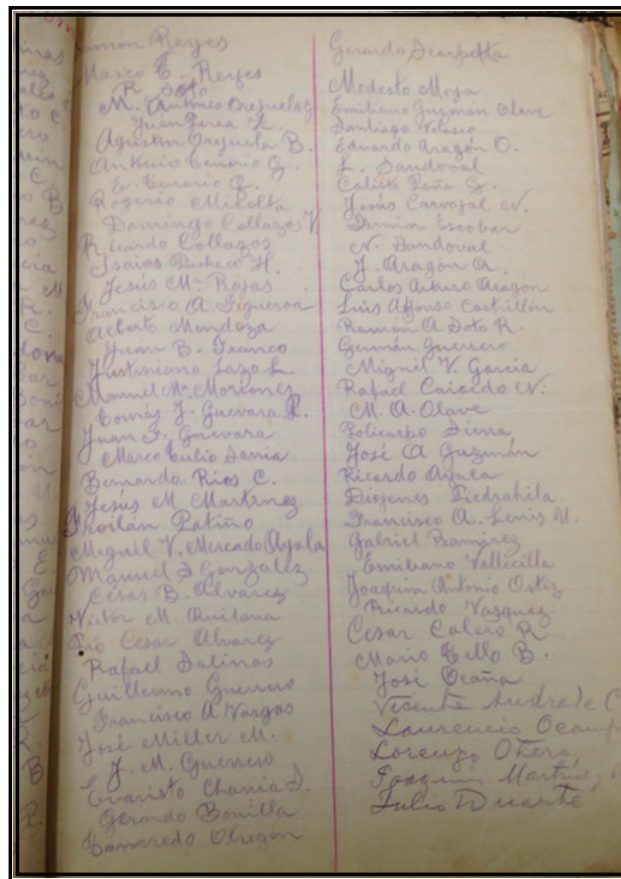 Ramón Reyes
Marco E. Reyes
R. Soto
M. Antonio Orejuela G.
Juan Perea L.
Agustin Orejuela B.
Antonio Tenorio G.
E. Tenorio G.
Rogerio Micolta
Domingo Collazos V.
Ricardo Collazos
Isaias Pacheco H.
Jesús Mª Rojas
Francisco A. Figueroa
Alberto Mendoza
Juan B. Franco
Justiniano Lazo L.
Manuel Mª Moriones
Tomás J. Guevara R.
Juan F. Guevara
Marco Tulio Sarria
Bernardo Rios C.
Jesús M Martinez
Froilán Patiño
Miguel V. Mercado Ayala
Manuel S González
Cesar B. Alvarez
Victor M. Quintana
Pio Cesar Alvarez
Rafael Salinas
Guillermo Guerrero
Francisco A Vargas
José Miller M.
J. M. Guerrero
Evaristo Charria S.
Gerardo Bonilla
Tancredo Obregón
Gerardo Scarpetta
Modesto Moya
Emiliano Guzmán Olave
Santiago Velasco
Eduardo Aragón O.
L. Sandoval
Calixto Peña G.
Jesús Carvajal N.
Fermin Escobar
N. Sandoval
J. Aragón A.
Carlos Arturo Aragón
Luis Alfonso Castrillón
Ramón A Soto R.
Germán Guerrero
Miguel V. Garcia
Rafael Caicedo N.
M. A. Olave
Policarpo Sierra
José A Guzmán
Ricardo Ayala
Diogenes Piedrahita
Francisco A. Lenis U.
Gabriel Ramirez
Emiliano Vallecilla
Joaquin Antonio Ortiz
Ricardo Vasquez
Cesar Calero R.
Mario Tello B.
José Ocaña
Vicente Andrade C
Laurencio Ocamp
Lorenzo Otero
Joaquin Martinez
Julio Duarte